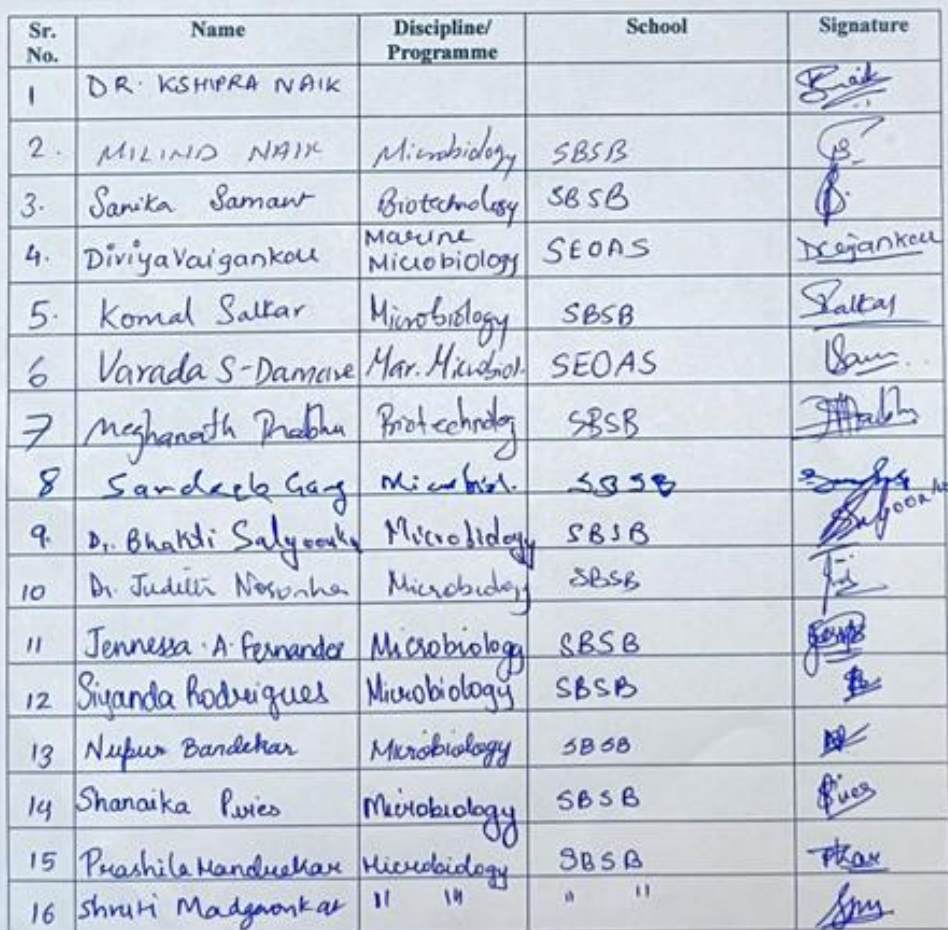 Sr. No. Name Discipline/ Programme School Signature
1 DR. KSHIPRA NAIK
2. MILIND NAIK Microbiology SBSB
3. Sanika Samant Biotechnology SBSB
4. Diviya Vaigankar Marine Microbiology SEOAS
5. Komal Salkar Microbiology SBSB Salkar
6 Varada S-Damare Mar. Microbiol. SEOAS
7 Meghanath Prabhu Biotechnology SBSB
8 Sandeep Garg Microbiol. SBSB
9. Dr. Bhakti Salgaonkar Microbiology SBSB
10 Dr. Judith Noronha Microbiology SBSB
11 Jennessa A. Fernandes Microbiology SBSB
12 Siyanda Rodrigues Microbiology SBSB
13 Nupur Bandekar Microbiology SBSB
14 Shanaika Pires Microbiology SBSB Pires
15 Prashila Mandrekar Microbiology SBSB
16 Shruti Madgaonkar " " " "